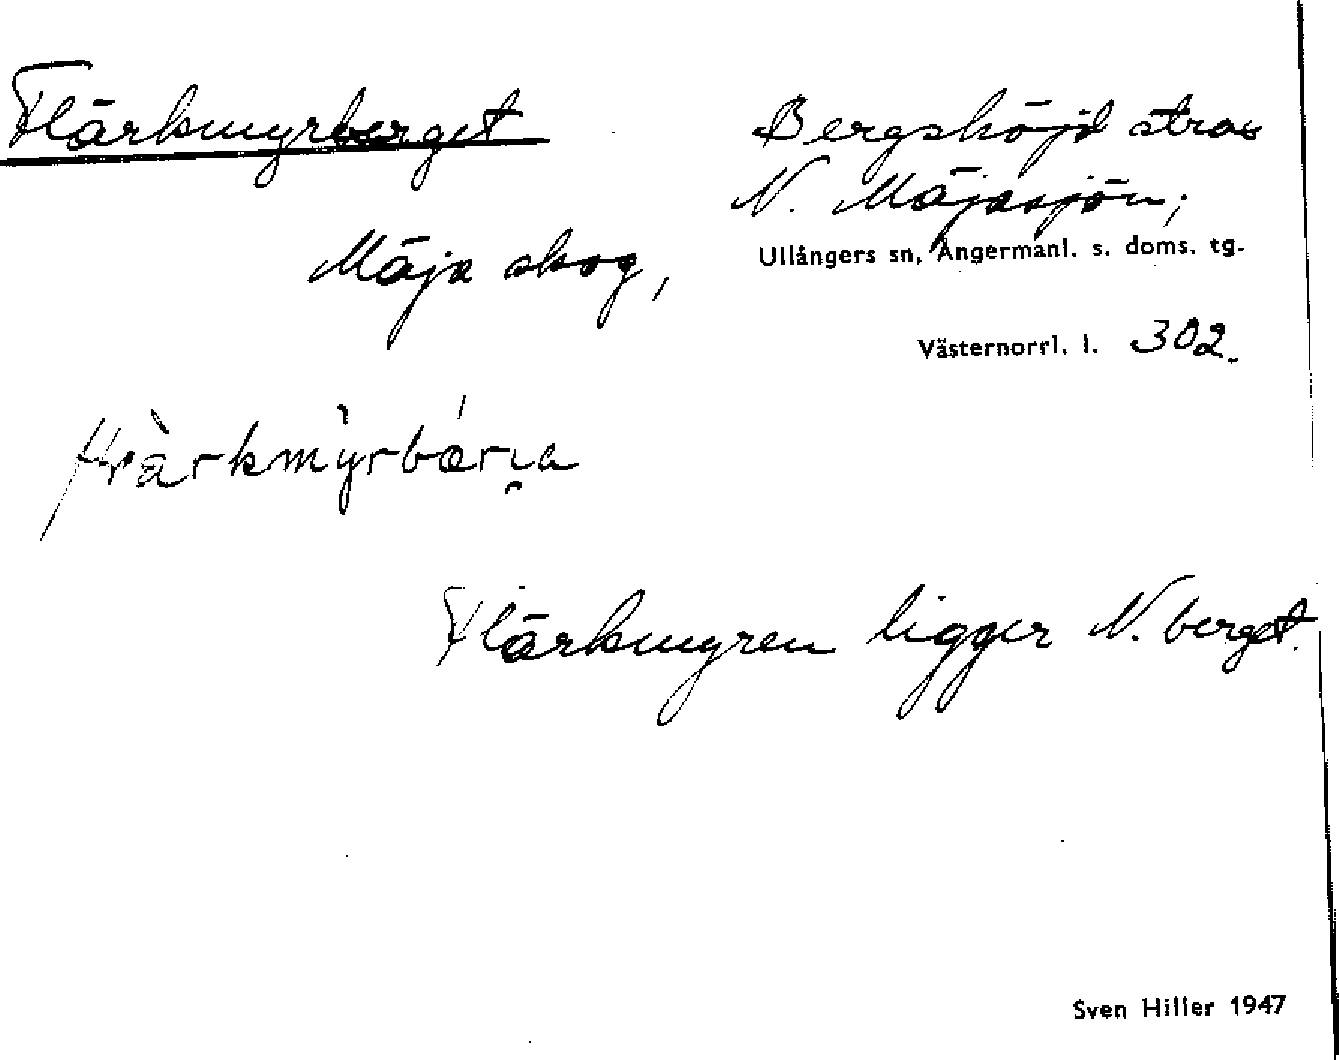 Flärkmyrberget
Bergshöjd strax
N. Mäjasjön;
Mäja skog,
Ullångers sn, Ångermanl. s. doms. tg.
Västernorrl. l. 302.
Flärkmyren ligger N. berget.
Sven Hiller 1947